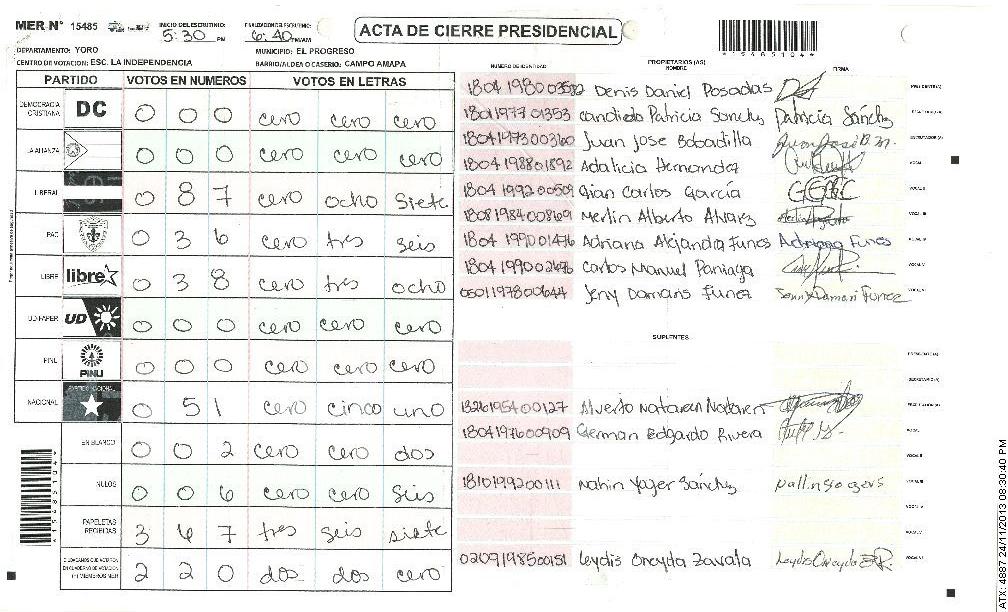 MER N° 15485 INICIO DEL ESCRUTINIO: 5:30 PM FINALIZACION ESCRUTINIO: 6:40 PM/AM
ACTA DE CIERRE PRESIDENCIAL
*15485104*
DEPARTAMENTO: YORO MUNICIPIO: EL PROGRESO
CENTRO DE VOTACION: ESC. LA INDEPENDENCIA BARRIO/ALDEA O CASERIO: CAMPO AMAPA
PARTIDO VOTOS EN NUMEROS VOTOS EN LETRAS
DEMOCRACIA CRISTIANA DC 0 0 0 cero cero cero
LA ALIANZA 0 0 0 cero cero cero
LIBERAL 0 8 7 cero ocho siete
PAC 0 3 6 cero tres seis
LIBRE libre 0 3 8 cero tres ocho
UD-FAPER UD 0 0 0 cero cero cero
PINU PINU 0 0 0 cero cero cero
NACIONAL PARTIDO NACIONAL 0 5 1 cero cinco uno
EN BLANCO 0 0 2 cero cero dos
NULOS 0 0 6 cero cero seis
PAPELETAS RECIBIDAS 3 6 7 tres seis siete
2 2 0 dos dos cero
NUMERO DE IDENTIDAD PROPIETARIOS (AS) NOMBRE FIRMA
Denis Daniel Posadas PRESIDENTE(A)
1801197701353 Candido Patricia Sanchz Patricia Sánchz SECRETARIO(A)
1804197300360 Juan Jose Bobadilla Juan José B.M. ESCRUTADOR(A)
1804198801892 Adalicia Hernandez VOCAL I
1804199200509 Gian Carlos García VOCAL II
1808198400869 Merlin Alberto Alvarz VOCAL III
1804199001476 Adriana Alejandra Funes Adriana Funes VOCAL IV
1804199002496 Carlos Manuel Paniaga VOCAL V
0501197800644 Jeny Damaris Funez Jenny Damari Funez VOCAL VI
SUPLENTES
PRESIDENTE(A)
SECRETARIO(A)
1326195400127 Alverto Nataren Nataren ESCRUTADOR(A)
1804197600909 German Edgardo Rivera VOCAL I
VOCAL II
1810199200111 Nahin Yager Sánchz VOCAL III
VOCAL IV
VOCAL V
0209198500151 Leydis Oneyda Zavala VOCAL VI
ATX: 4887 24/11/2013 08:30:40 PM